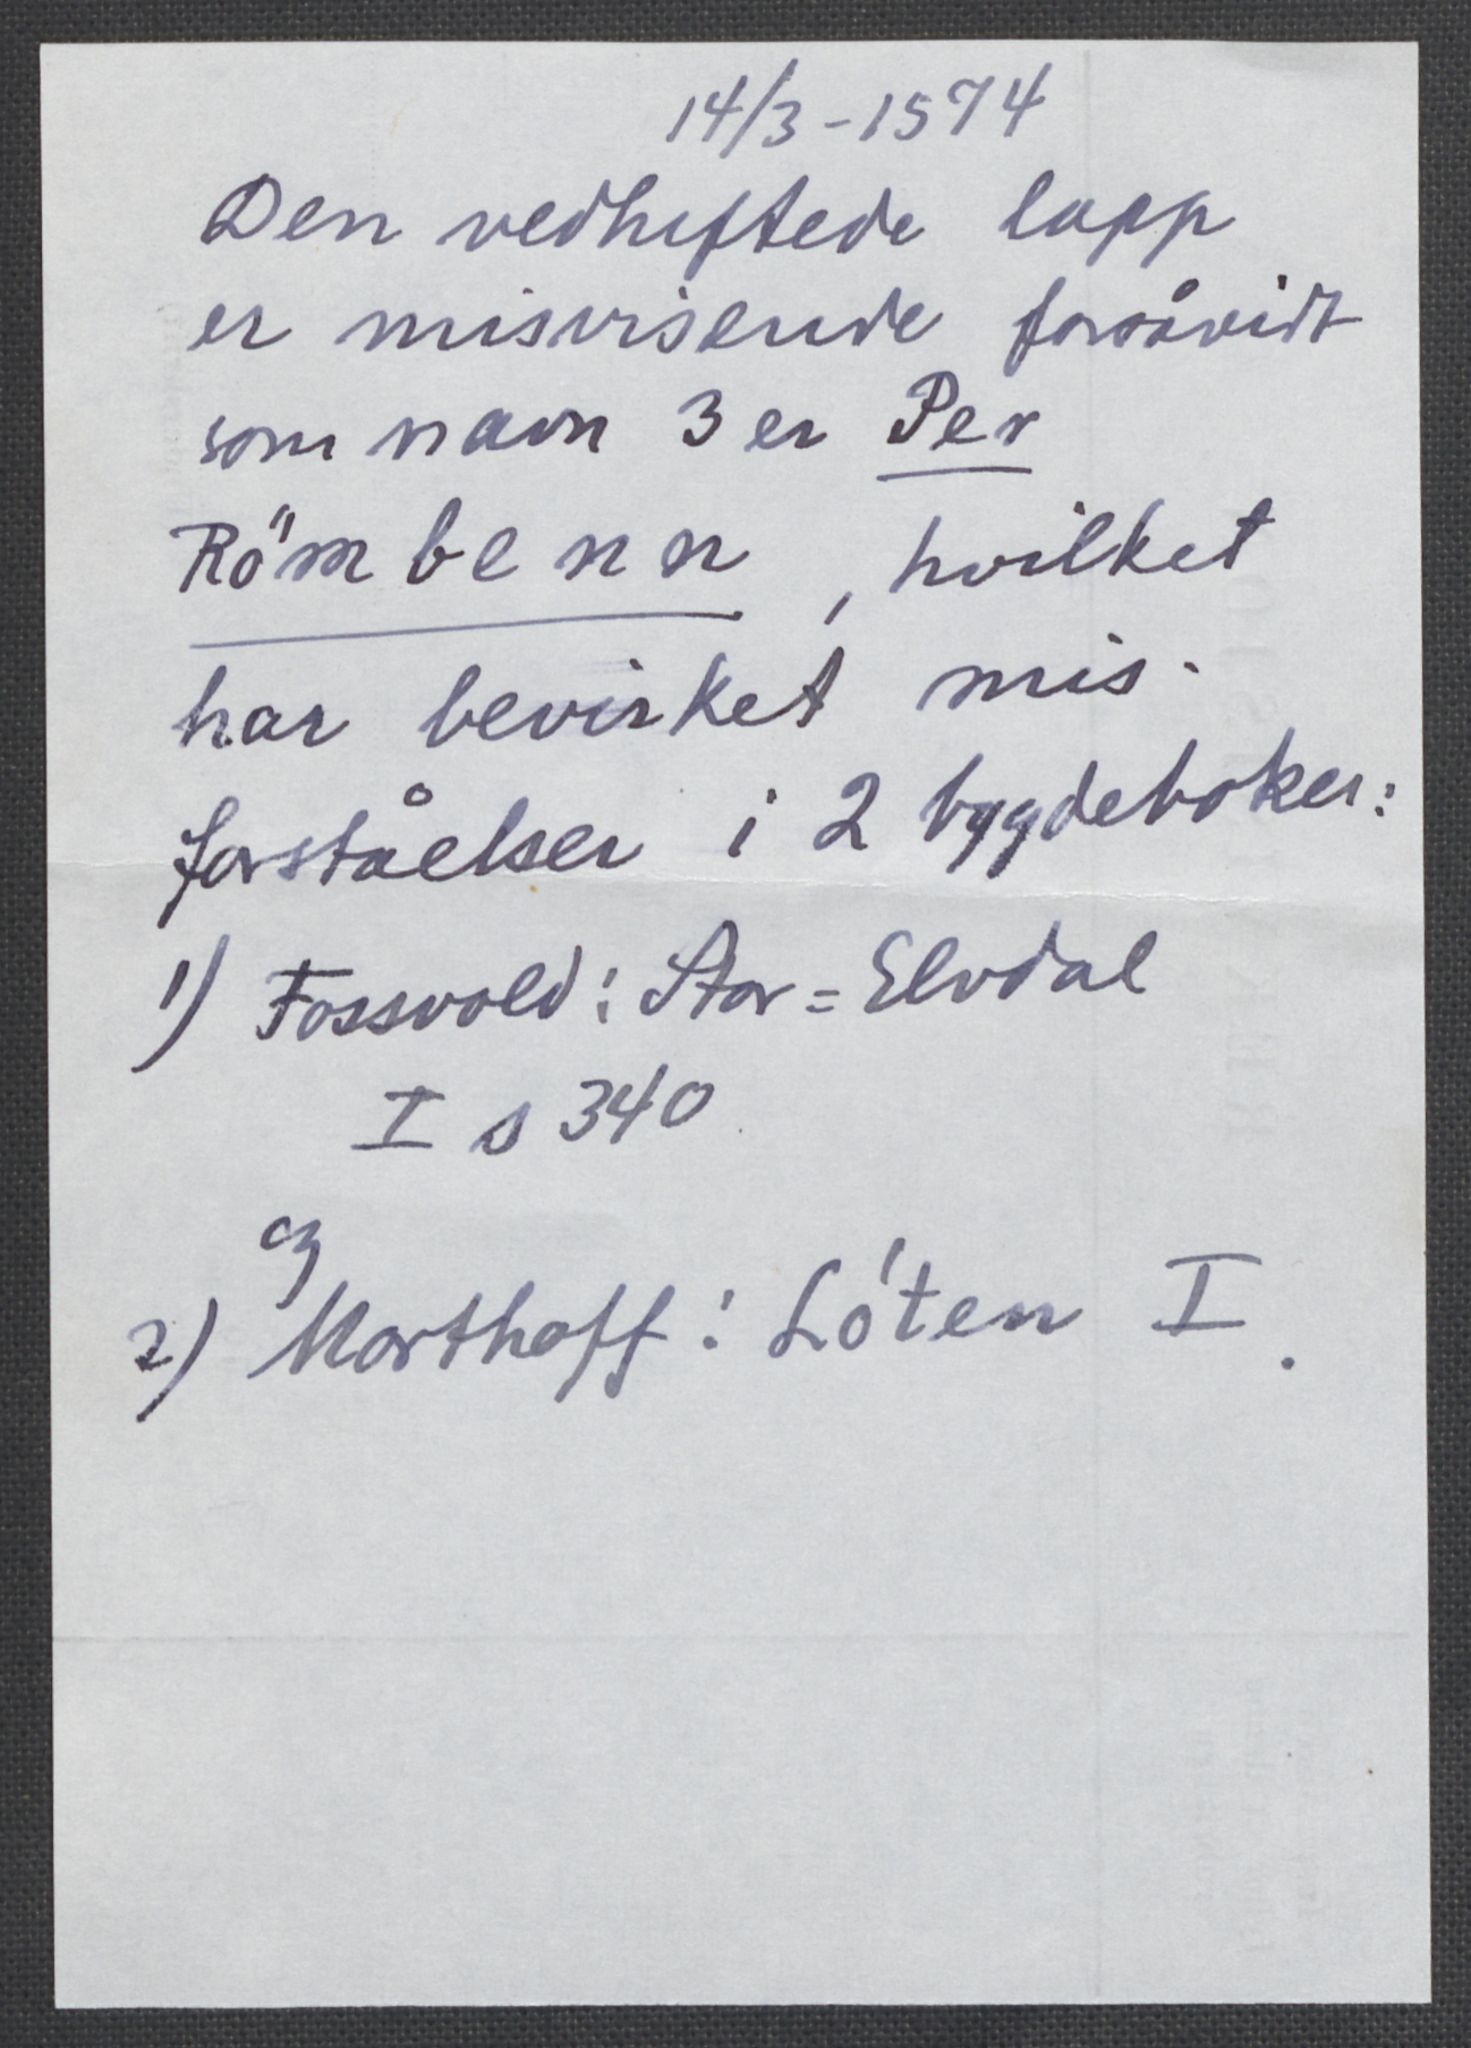 14/3 - 1574
Den vedheftede lapp
er misvisende forsåvidt
som navn 3 er Per
Römbenn, hvilket
har bevirket mis-
forståelser i 2 bygdebøker:
1) Fossvold: Stor=Elvdal
I s 340
og
2) Morthoff: Löten I.